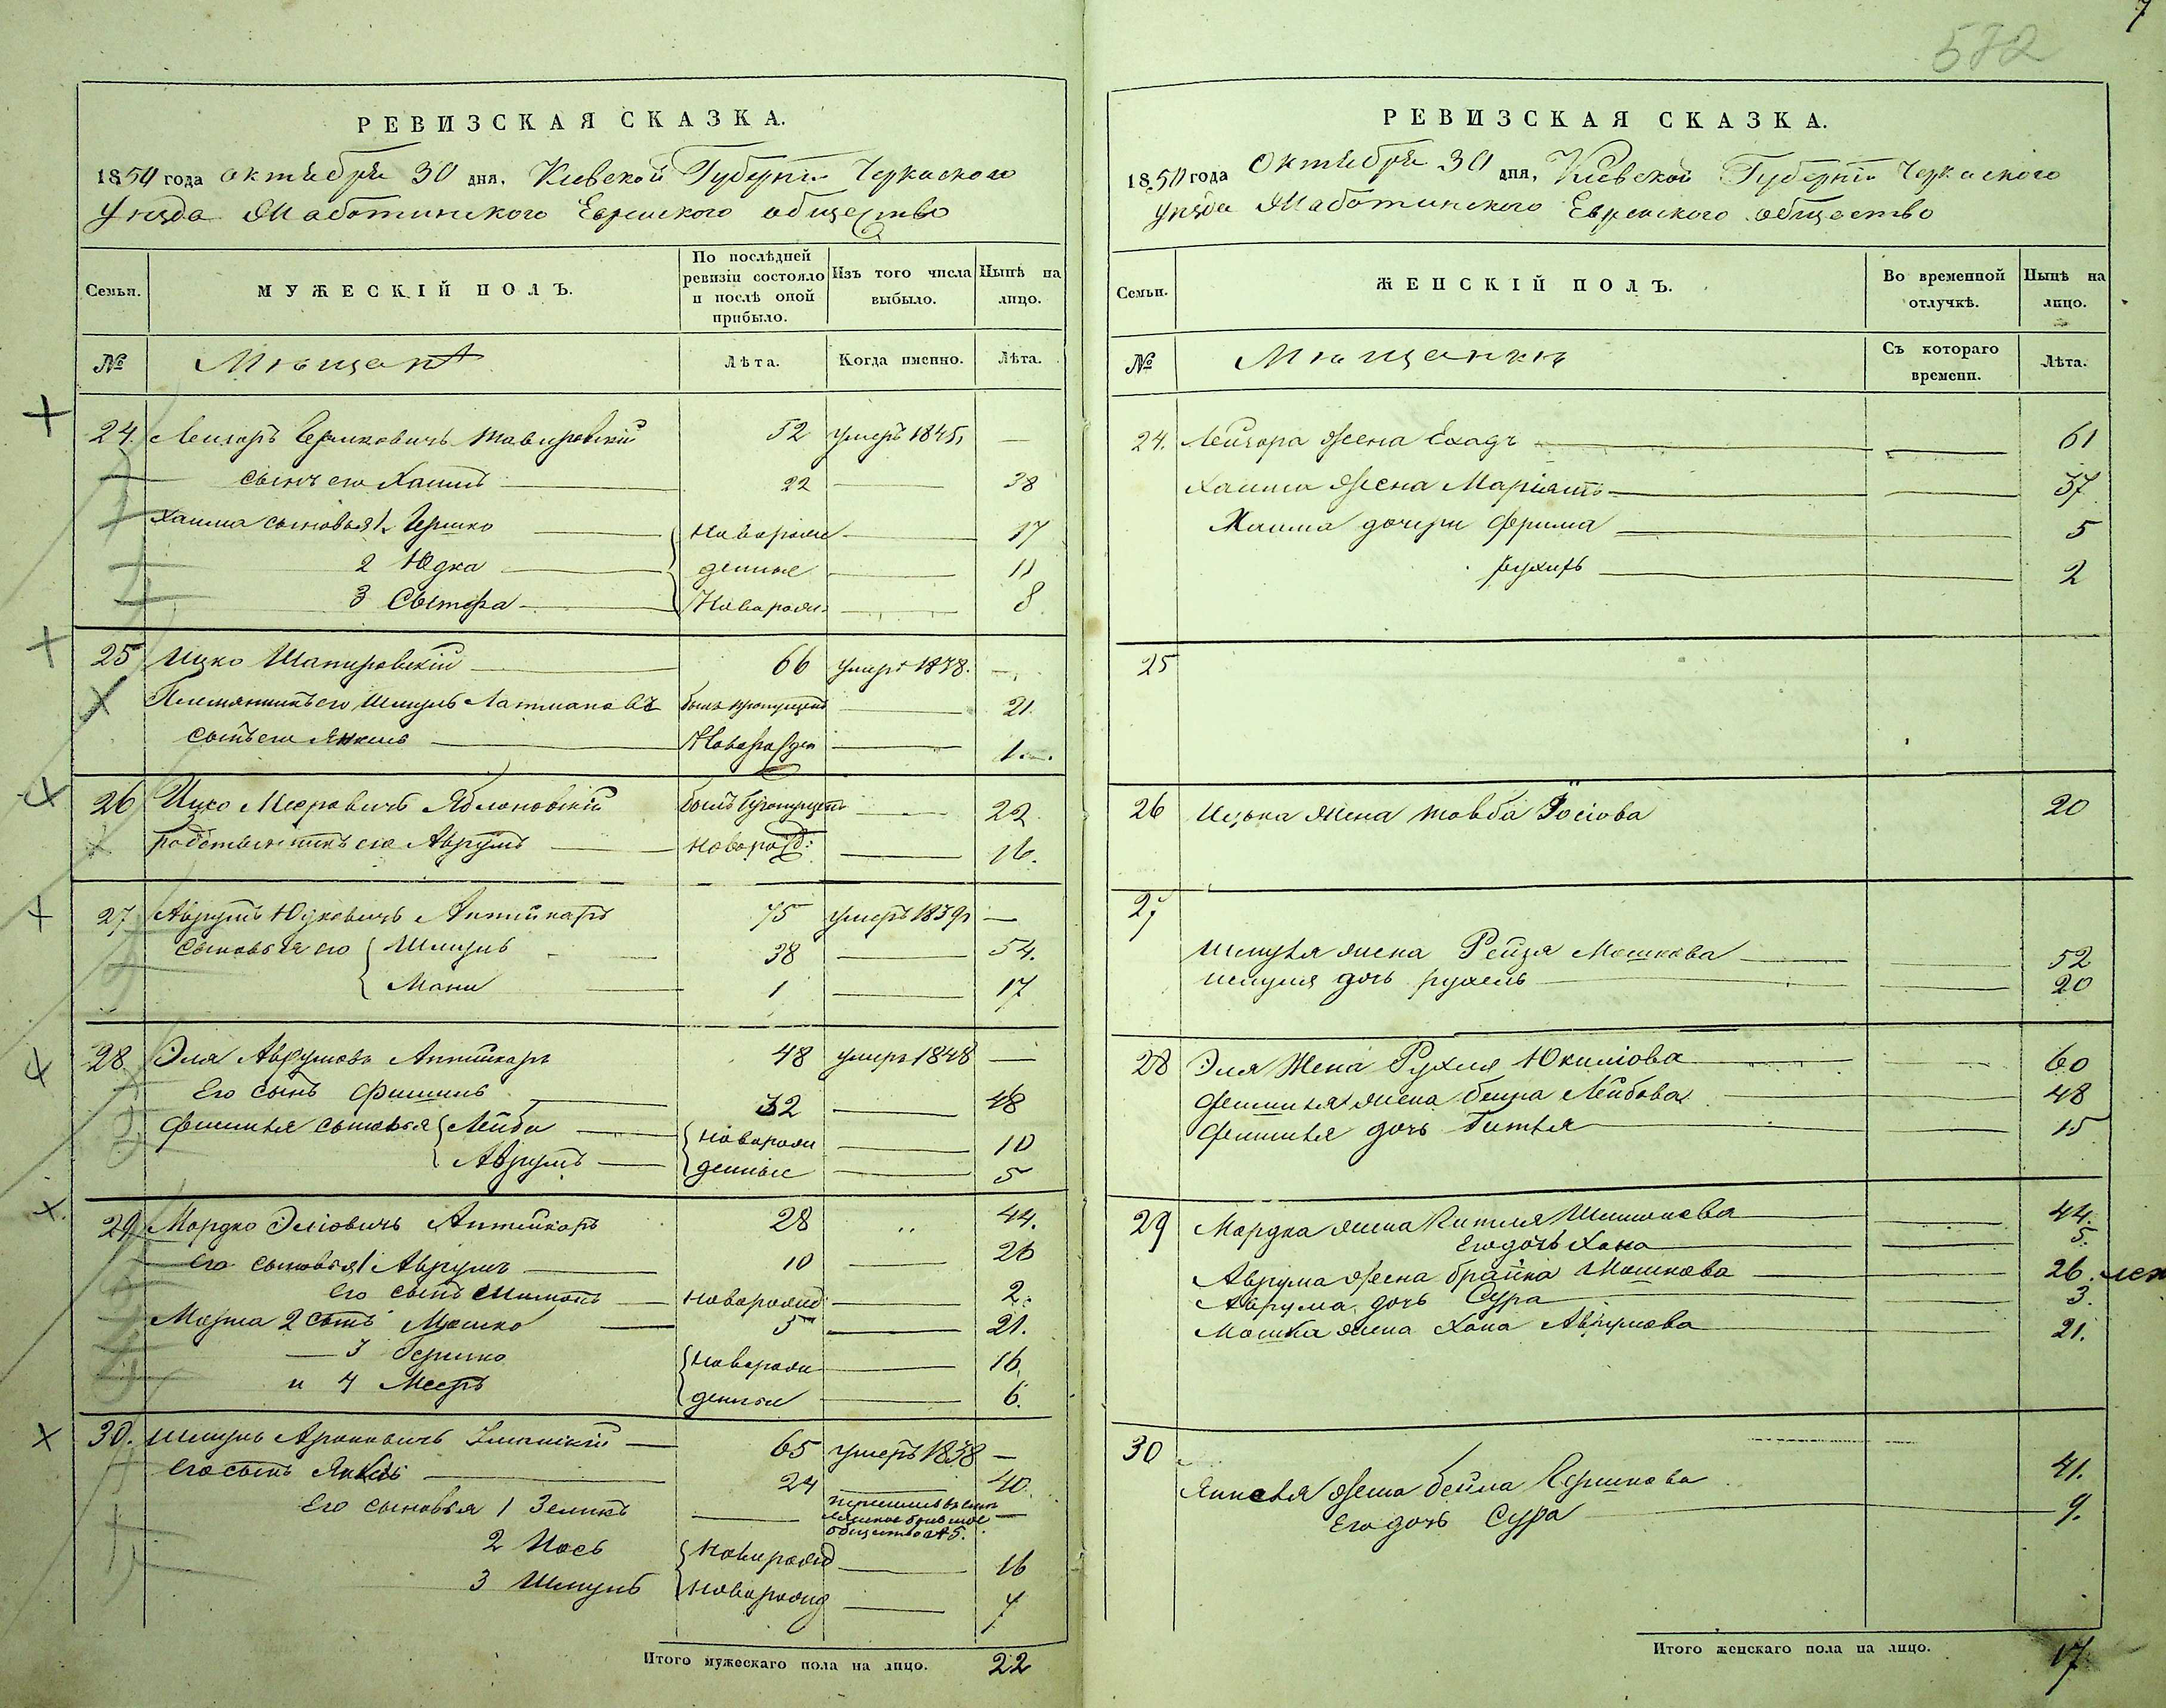 7
572
РЕВИЗСКАЯ СКАЗКА.
1850 года октября 30 дня. Киевской Губерніи Черкаского
уѣзда Мљботинского Еврейского общество
Семьи.
МУЖЕСКІЙ ПОЛЪ.
По послѣдней ревизіи состояло и послѣ оной прибыло.
Изъ того числа выбыло.
Нынѣ на лицо.
№ Мѣщанѣ Лѣта. Когда именно. Лѣта.
24. Лейзоръ Берковичъ 52 умеръ 1845 —
сынъ его Хаимъ 22 — 38
Хаима сыновья 1. Гершко новорож 17
2 Юдка денные 11
3 Новорож. 8
25 Ицко Шапировскій 66 умеръ 1848. —
Племянникъ его Шмуль былъ пропущенъ — 21.
сынъ его Янкель Новорожден — 1.
26 Ицко Мееровичъ Яблоновскій былъ пропущенъ — 22.
его Аврумъ новорожд: — 16.
27 Аврумъ Юдковичъ Аптейкаръ 75 умеръ 1839 —
сыновья его Шмуль 38 — 54.
Мани 1 — 17
28 Эля Аврумовъ Аптейкаръ 48 умеръ 1848 —
Его сынъ Фишель 32 — 48
Фишеля сыновья Лейба новорож — 10
Аврумъ денные — 5
29 Мордко Эліовичъ Аптейкаръ 28 „ 44.
Его сыновья 1 Аврумъ 10 — 26
Его сынъ Шимонъ новорожд — 2.
2 сынъ Мошко 5 — 21.
— 3 Гершко новорож — 16.
и 4 Мееръ денные — 6.
30. Шмуль Ароновичъ 65 умеръ 1838 —
Его сынъ Янкель 24 — 40.
Его сыновья 1 Зеликъ — общество —
2 Іось новорожд — 16
3 Шмуль новорожд — 7
Итого мужескаго пола на лицо. 22
РЕВИЗСКАЯ СКАЗКА.
1850 года Октября 30 дня, Кіевской Губерніи Черкаского
уѣзда Мљботинского Еврейского общество
Семьи.
ЖЕНСКІЙ ПОЛЪ.
Во временной отлучкѣ.
Нынѣ на лицо.
№ Мѣщанки Съ котораго времени. Лѣта.
24. Лейзора жена — 61
Хаима жена Маріямъ — 37
Хаима дочери Фрима — 5
Рухль — 2
25
26 Ицька жена Товба Іосіова 20
27
Шмуля жена Рейзя Мошкова — 52
Шмуля дочь Рухель — 20
28 Эля Жена Рухля — 60
Фишеля жена Бейра Лейбова — 48
Фишеля дочь Гитля — 15
29 Мордка жена Шимонова — 44.
Его дочь Хана — 5.
Аврума жена Брайна Мошкова — 26.
Аврума дочь Сура — 3.
Мошка жена Хана Аврумова — 21.
30
Янкеля жена Бейла Гершкова 41.
Его дочь Сура — 9.
Итого женскаго пола на лицо. 17